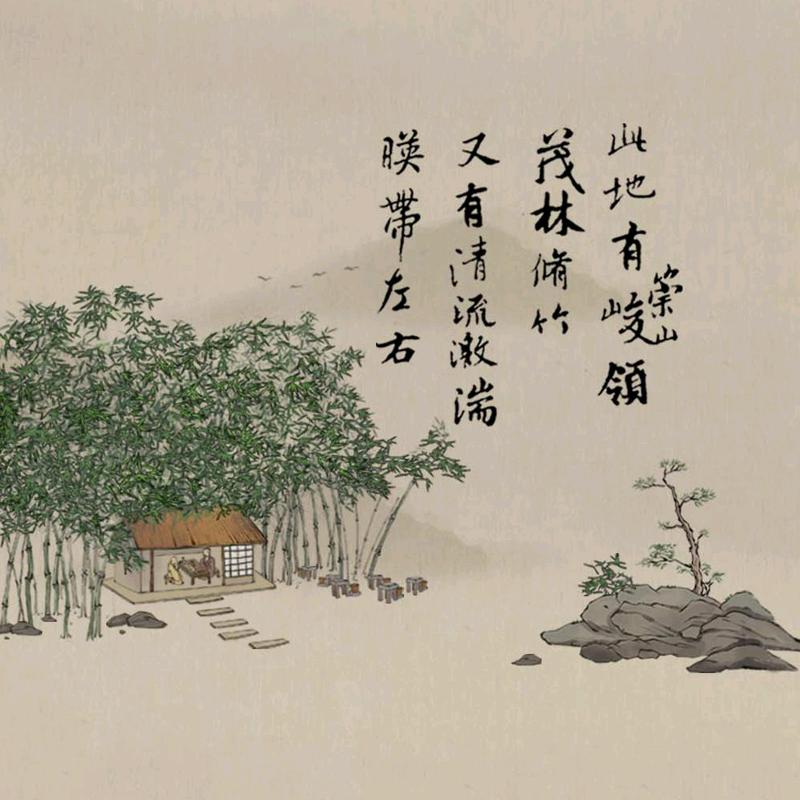 此地有崇山峻領
茂林脩竹
又有清流激湍
暎帶左右